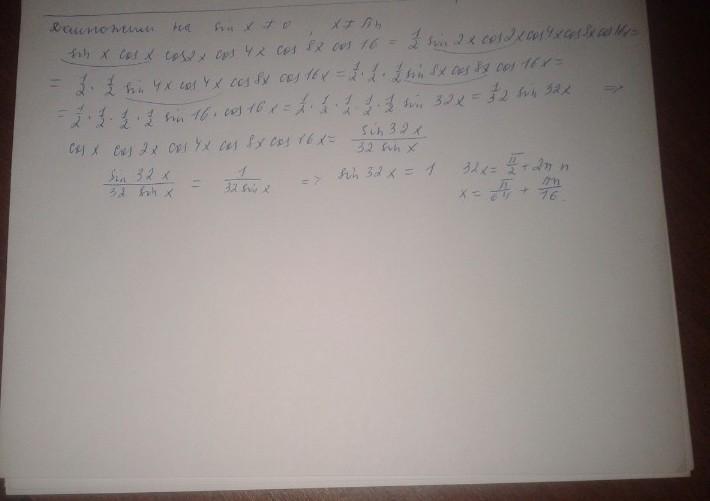 Домножим на sin x ≠ 0, x ≠ πn
sin x cos x cos2x cos 4x cos 8x cos 16 = 1/2 sin 2x cos2x cos4x cos8x cos16x =
= 1/2 · 1/2 sin 4x cos 4x cos 8x cos 16x = 1/2 · 1/2 · 1/2 sin 8x cos 8x cos 16x =
= 1/2 · 1/2 · 1/2 · 1/2 sin 16 · cos 16x = 1/2 · 1/2 · 1/2 · 1/2 · 1/2 sin 32x = 1/32 sin 32x ⇒
cos x cos 2x cos 4x cos 8x cos 16x = sin 32x / 32 sin x
sin 32x / 32 sin x = 1 / 32 sin x => sin 32x = 1 32x = π/2 + 2πn
x = π/64 + πn/16.